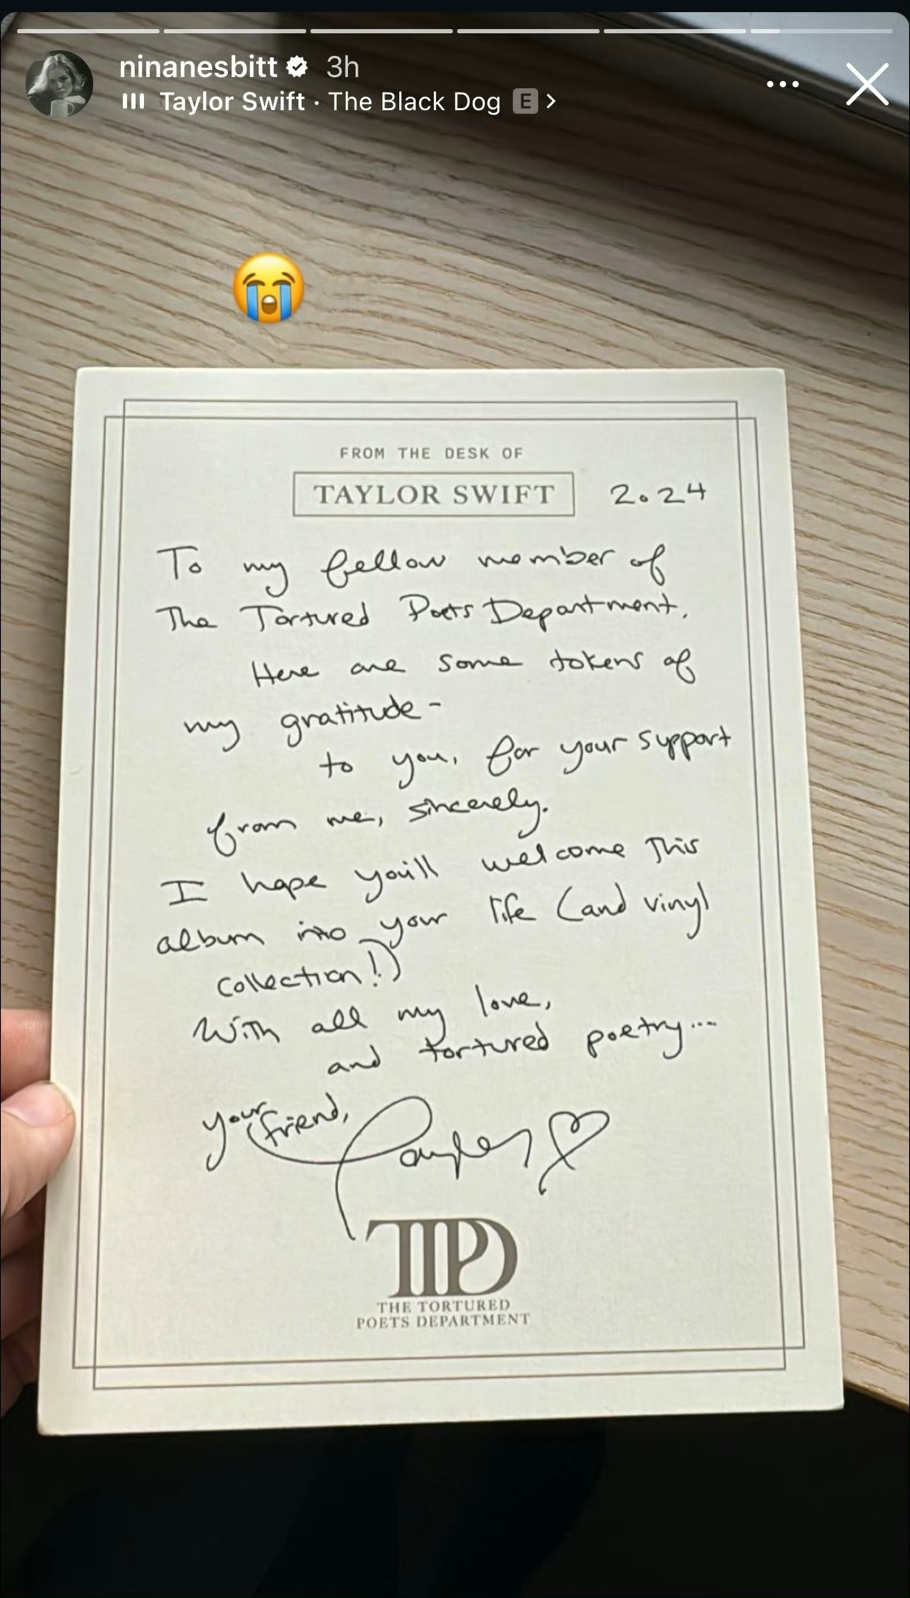 ninanesbitt 3h
Taylor Swift · The Black Dog E
FROM THE DESK OF
TAYLOR SWIFT 2024
To my fellow member of
The Tortured Poets Department.
Here are some tokens of
my gratitude-
to you, for your support
from me, sincerely.
I hope you'll welcome this
album into your life (and vinyl
collection!)
With all my love,
and tortured poetry...
your friend,
Taylor
TTPD
THE TORTURED
POETS DEPARTMENT